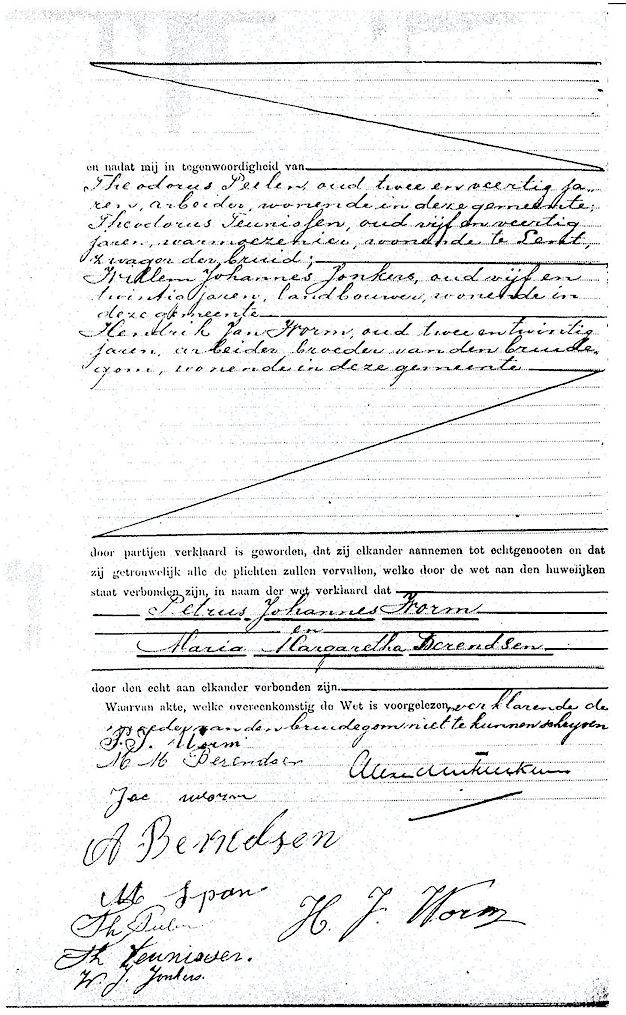 en nadat mij in tegenwoordigheid van
Theodorus Peelen, oud twee en veertig ja-
ren, arbeider, wonende in deze gemeente;
Theodorus Teunissen, oud vijf en veertig
jaren, warmoezenier, wonende te Lent,
zwager der bruid;
Willem Johannes Jonkers, oud vijf en
twintig jaren, landbouwer, wonende in
deze gemeente
Hendrik Jan Worm, oud twee en twintig
jaren, arbeider, broeder van den bruide-
gom, wonende in deze gemeente
door partijen verklaard is geworden, dat zij elkander aannemen tot echtgenooten en dat
zij getrouwelijk alle de plichten zullen vervullen, welke door de wet aan den huwelijken
staat verbonden zijn, in naam der wet verklaard dat
Petrus Johannes Worm
en
Maria Margaretha Berendsen
door den echt aan elkander verbonden zijn.
Waarvan akte, welke overeenkomstig de Wet is voorgelezen, verklarende de
moeder van den bruidegom niet te kunnen schrijven
P. J. Worm
M M Berendsen
Jac worm
A Berndsen
M Span
H. J. Worm
Th Peelen
Th Teunissen.
W. J. Jonkers.